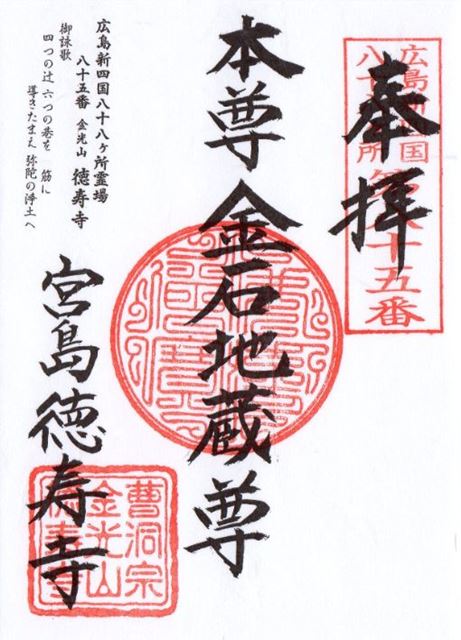 奉拝
広島新四国
八十八ヶ所第八十五番
本尊 金石地蔵尊
宮島 徳寿寺
曹洞宗
金光山
徳寿寺
広島新四国八十八ヶ所霊場
八十五番 金光山 徳寿寺
御詠歌
四つの辻 六つの巷を 一筋に
導きたまえ 弥陀の浄土へ